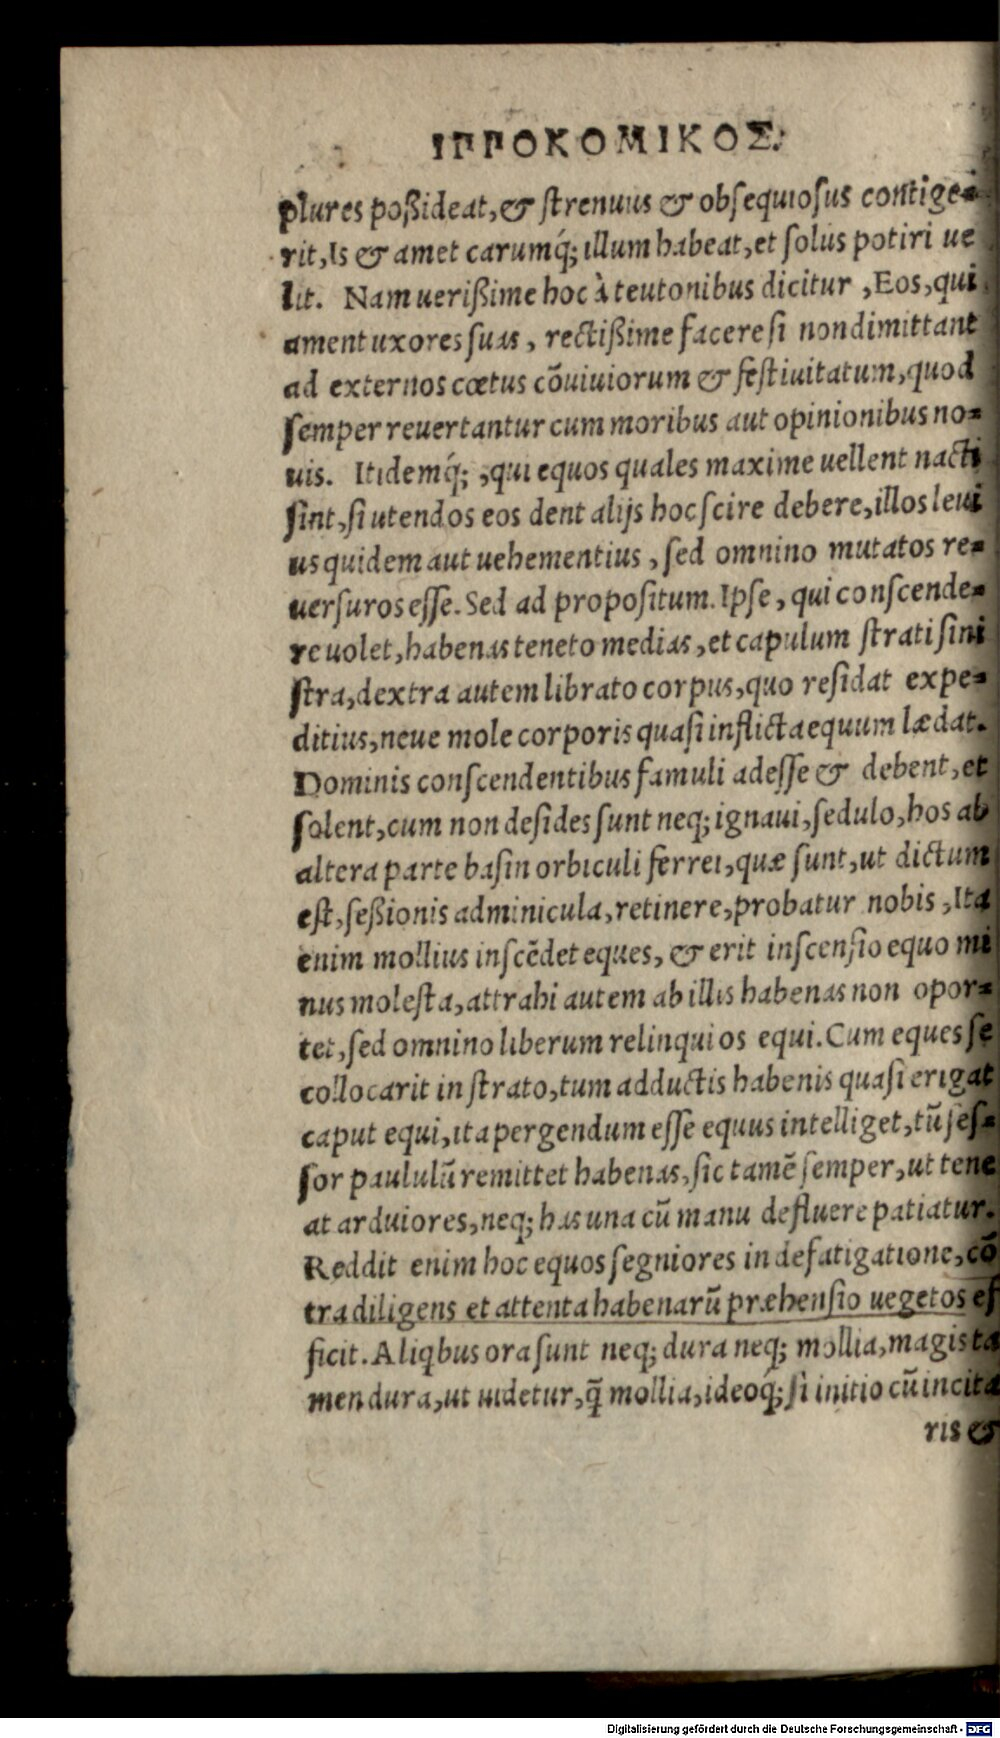 ΙΠΠΟΚΟΜΙΚΟΣ.
plures poßideat, & ſtrenuus & obſequioſus contige-
rit, Is & amet carumq́; illum habeat, et ſolus potiri ue
lit. Nam uerißime hoc à teutonibus dicitur, Eos, qui
ament uxores ſuas, rectißime facere ſi non dimittant
ad externos cœtus cōuiuiorum & feſtiuitatum, quod
ſemper reuertantur cum moribus aut opinionibus no-
uis. Itidemq́;, qui equos quales maxime uellent nacti
ſint, ſi utendos eos dent alijs hoc ſcire debere, illos leui
us quidem aut uehementius, ſed omnino mutatos re-
uerſuros eſſe. Sed ad propoſitum. Ipſe, qui conſcende-
re uolet, habenas teneto medias, et capulum ſtrati ſini
ſtra, dextra autem librato corpus, quo reſidat expe-
ditius, neue mole corporis quaſi inflicta equum lædat.
Dominis conſcendentibus famuli adeſſe & debent, et
ſolent, cum non deſides ſunt neq; ignaui, ſedulo, hos ab
altera parte baſin orbiculi ferrei, quæ ſunt, ut dictum
eſt, ſeßionis adminicula, retinere, probatur nobis, Ita
enim mollius inſcēdet eques, & erit inſcenſio equo mi
nus moleſta, attrahi autem ab illis habenas non opor-
tet, ſed omnino liberum relinqui os equi. Cum eques ſe
collocarit in ſtrato, tum adductis habenis quaſi erigat
caput equi, ita pergendum eſſe equus intelliget, tū ſeſ-
ſor paululū remittet habenas, ſic tamē ſemper, ut tene
at arduiores, neq; has una cū manu defluere patiatur.
Reddit enim hoc equos ſegniores in defatigatione, cō
tra diligens et attenta habenarū præhenſio uegetos ef
ficit. Aliqbus ora ſunt neq; dura neq; mollia, magis ta
men dura, ut uidetur, q̄ mollia, ideoq́; ſi initio cū incita
ris &
Digitalisierung gefördert durch die Deutsche Forschungsgemeinschaft - DFG